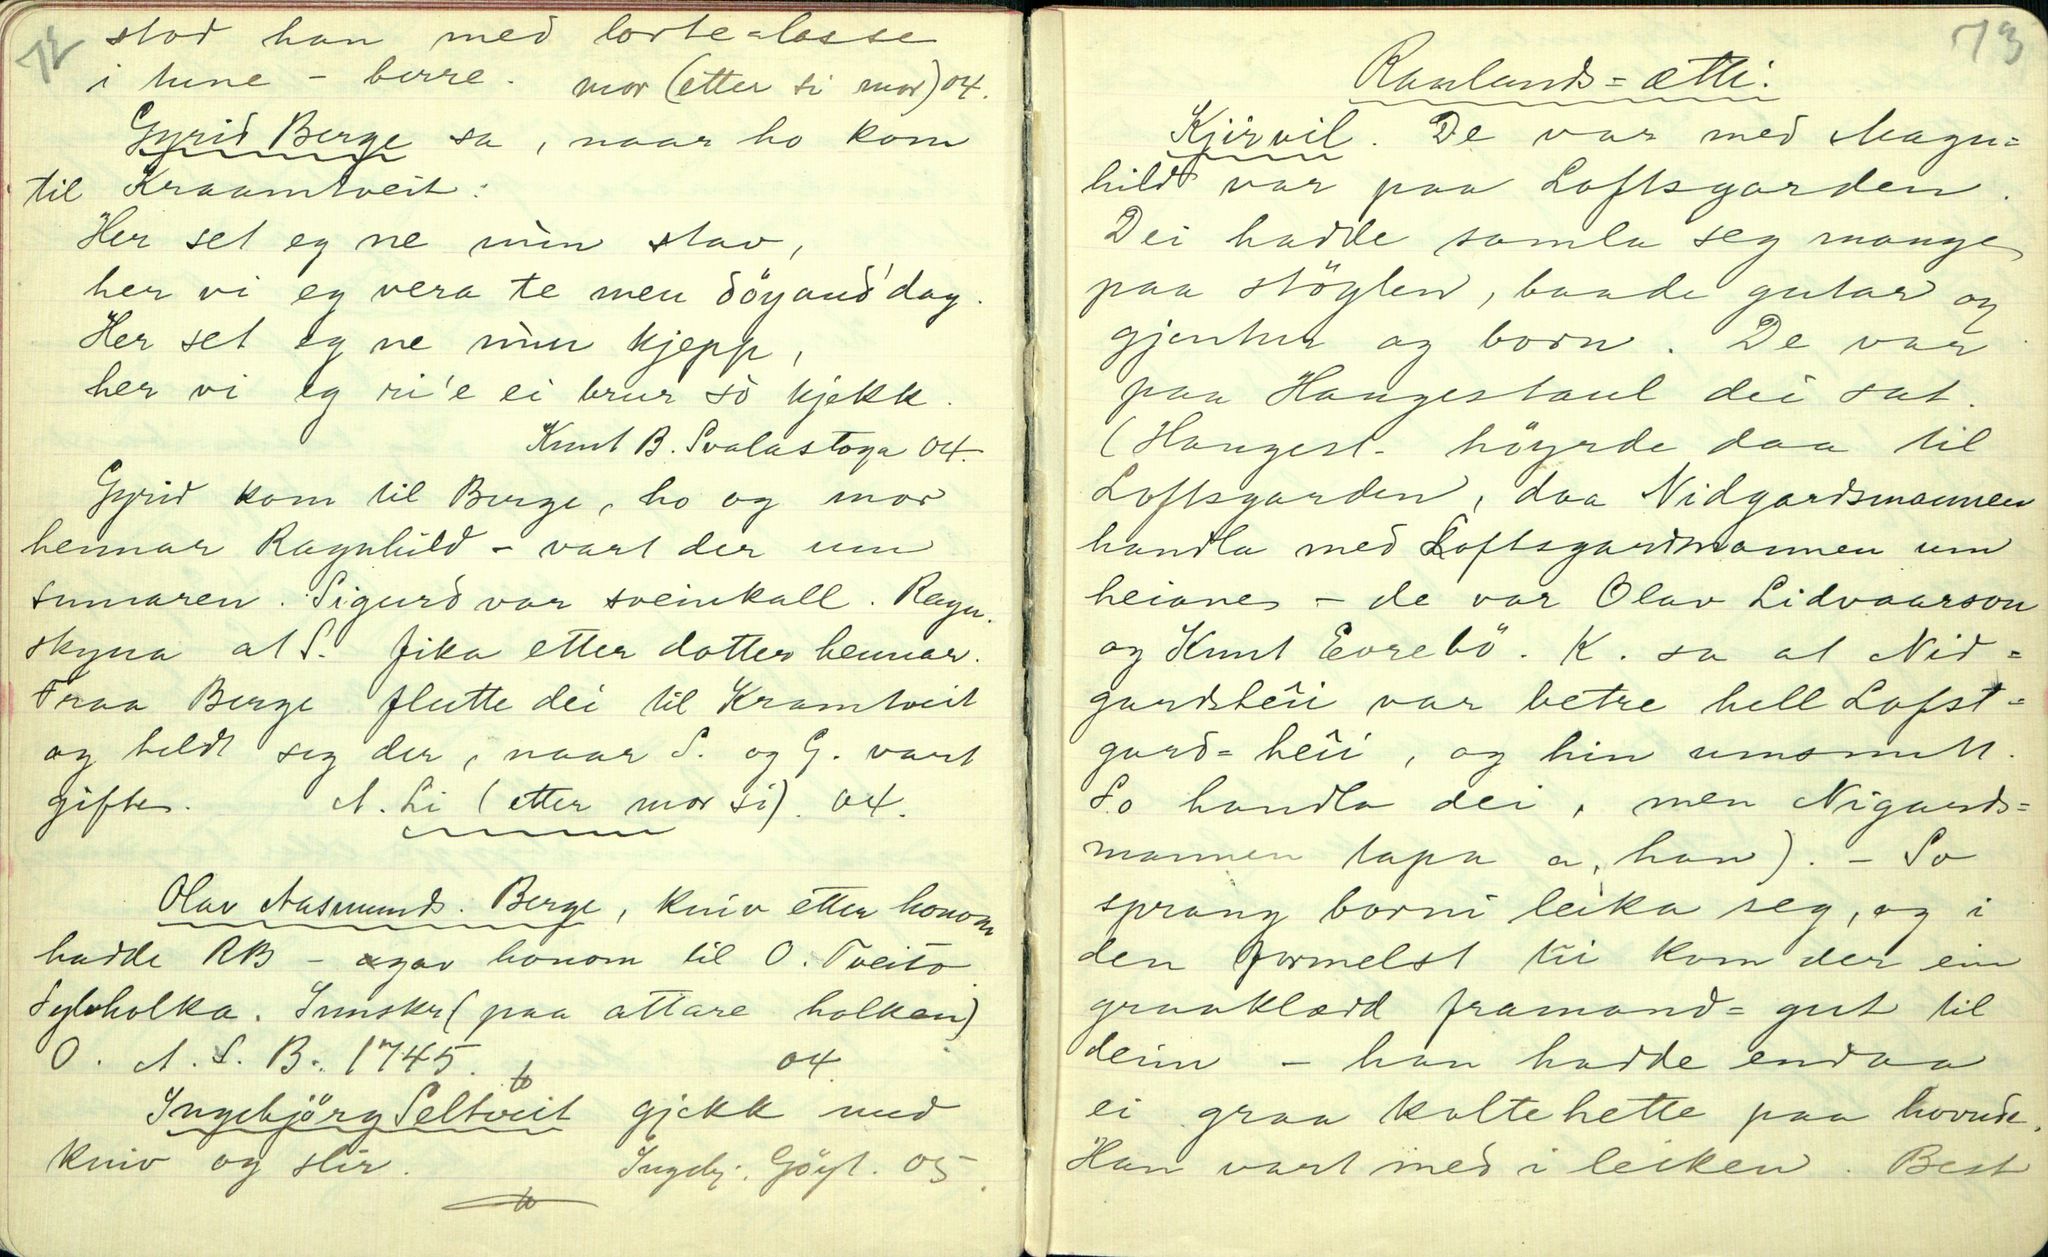 72
stod han med lorte-lasse
i tune - berre. mor (etter si mor) 04.
Gyrid Berge sa, naar ho kom
til Kraamtveit:
Her set eg ne min stav,
her vi eg vera te men döyand' dag.
Her set eg ne min kjepp,
her vi eg ri'e ei brur so kjekk.
Knut B. Svalastoga 04.
Gyrid kom til Berge, ho og mor
hennar Ragnhild - vart der um
sumaren. Sigurd var sveinkall. Ragn.
skyna at S. fika etter dotter hennar.
Fraa Berge flutte dei til Kramtveit
og heldt seg der, naar S. og G. vart
gifte. A. Li (etter mor si). 04.
Olav Aasmunds. Berge, kniv etter honom
hadde RB - agav honom til O. Tveito
Sylvholka. Innskr (paa attare holken)
O. A. S. B. 1745. 04
Ingebjörg Seltveit gjekk med
kniv og slir. Ingebj. Göyt. 05.
73
Raulands=ætti.
Kjirvil. De var med Magn=
hild var paa Loftsgarden.
Dei hadde samla seg mange
paa stöylen, baade gutar og
gjentur og born. De var
paa Haugestaul dei sat.
(Haugest. höyrde daa til
Loftsgarden, daa Nidgardsmannen
handla med Loftsgardmannen um
heiane - de var Olav Lidvaarson
og Knut Evrebö. K. sa at Nid=
gardsheii var betre hell Lofst=
gard=heii, og hin umsnutt.
So handla dei, men Nigards=
mannen tapa a, han). - So
sprang borni leika seg, og i
den formelst tii kom der ein
graaklædd framand=gut til
deim - han hadde endaa
ei graa koltehette paa hovude.
Han vart med i leiken. Best